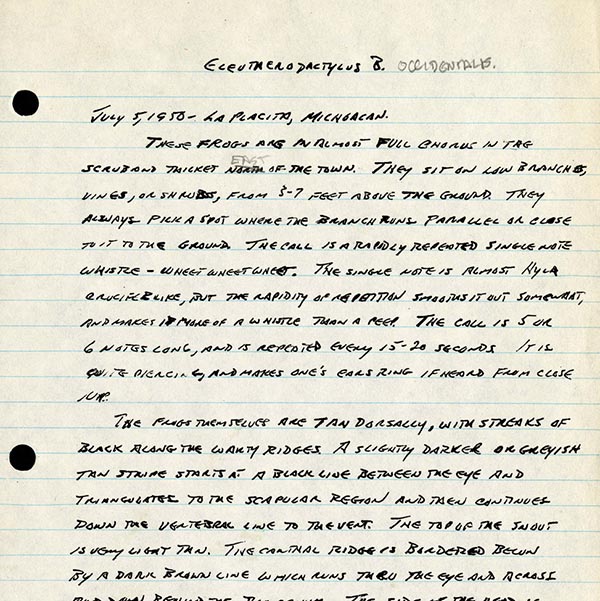 ELEUTHERODACTYLUS B. OCCIDENTALIS.
JULY 5, 1950 - LA PLACITA, MICHOACAN.
THESE FROGS ARE IN ALMOST FULL CHORUS IN THE
EAST
SCRUB AND THICKET NORTH OF THE TOWN. THEY SIT ON LOW BRANCHES,
VINES, OR SHRUBS, FROM 3-7 FEET ABOVE THE GROUND. THEY
ALWAYS PICK A SPOT WHERE THE BRANCH RUNS PARALLEL OR CLOSE
TO IT TO THE GROUND. THE CALL IS A RAPIDLY REPEATED SINGLE NOTE
WHISTLE - WHEET WHEET WHEET. THE SINGLE NOTE IS ALMOST HYLA
CRUCIFER LIKE, BUT THE RAPIDITY OF REPETITION SMOOTHS IT OUT SOMEWHAT,
AND MAKES IT MORE OF A WHISTLE THAN A PEEP. THE CALL IS 5 OR
6 NOTES LONG, AND IS REPEATED EVERY 15-20 SECONDS. IT IS
QUITE PIERCING, AND MAKES ONE'S EARS RING IF HEARD FROM CLOSE
UP.
THE FROGS THEMSELVES ARE TAN DORSALLY, WITH STREAKS OF
BLACK ALONG THE WARTY RIDGES. A SLIGHTLY DARKER OR GREYISH
TAN STRIPE STARTS AT A BLACK LINE BETWEEN THE EYE AND
TRIANGULATES TO THE SCAPULAR REGION AND THEN CONTINUES
DOWN THE VERTEBRAL LINE TO THE VENT. THE TOP OF THE SNOUT
IS VERY LIGHT TAN. THE CANTHAL RIDGE IS BORDERED BELOW
BY A DARK BROWN LINE WHICH RUNS THRU THE EYE AND ACROSS
AND DOWN BEHIND THE TYMPANUM. THE SIDE OF THE HEAD IS